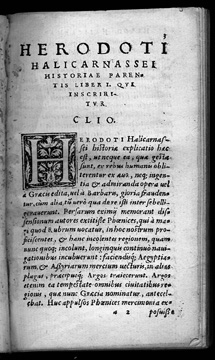 3
HERODOTI
HALICARNASSEI
HISTORIAE PAREN-
TIS LIBER I. QVI
INSCRIBI-
TVR
CLIO.
HERODOTI Halicarnas-
sei historiæ explicatio hæc
est, ut neque ea, quæ gesta
sunt, ex rebus humanis obli-
terentur ex æuo, neq; ingen-
tia & admiranda opera uel
à Græcis edita, uel à Barbaris, gloria fraudentur
tur, cum alia, tū uerò qua de re isti inter se belli-
gerauerunt. Persarum eximij memorant dis-
sensionum autores extitisse Phœnices, qui à ma-
ri quod rubrum uocatur, in hoc nostrum pro-
ficiscentes, & hanc incolentes regionem, quam
nunc quoq; incolunt, longinquis continuò naui-
gationibus incubuerunt: faciendisq; Aegyptia-
rum, & Assyriarum mercium uecturis, in alias
plagas, præcipueq; Argos traiecerunt. Argos
etenim ea tempestate omnibus ciuitatibus re-
gionis, quæ nunc Græcia nominatur, antecel-
lebat. Huc appulsos Phœnices mercimonia ex-
a 2 posuisse